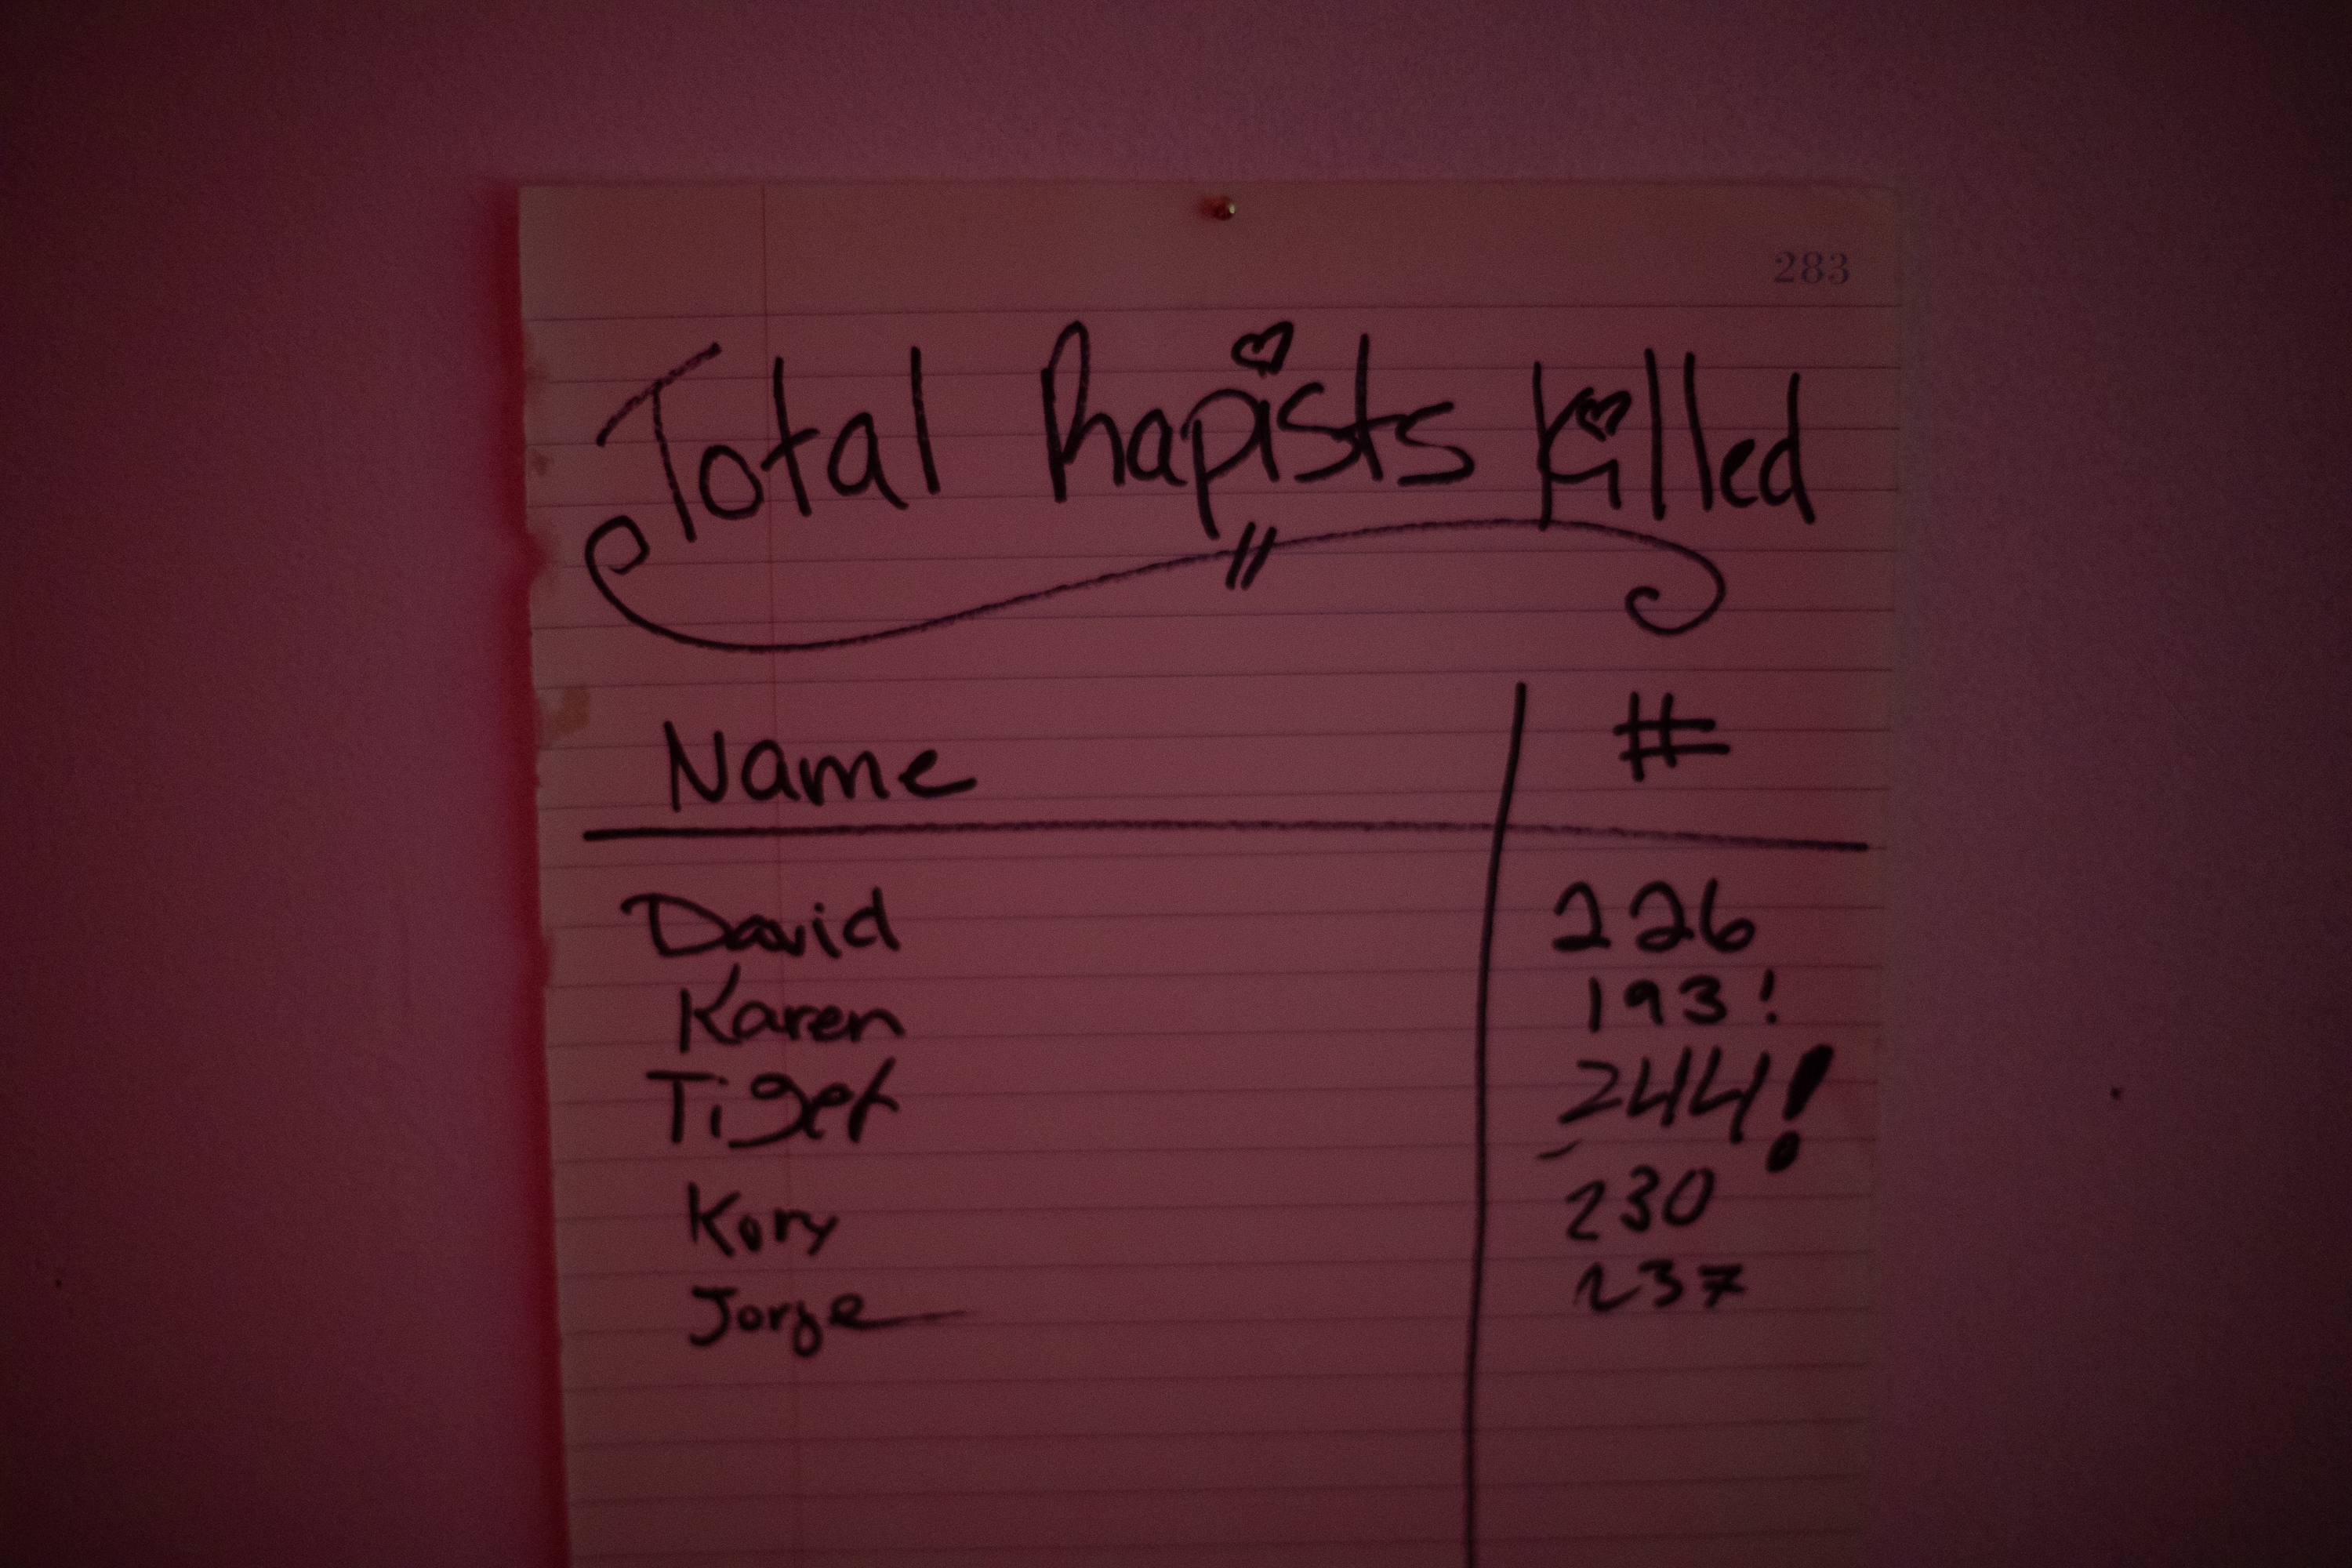 283
Total Rapists Killed
Name #
David 226
Karen 193!
Tiger 244!
Kory 230
Jorge 237